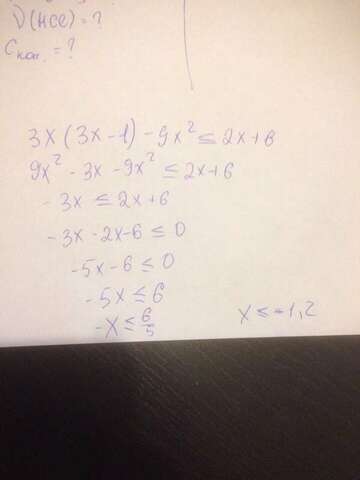 ν(HCl) = ?
Cкон. = ?
3x(3x-1) - 9x² ≤ 2x+6
9x² - 3x - 9x² ≤ 2x+6
-3x ≤ 2x+6
-3x - 2x - 6 ≤ 0
-5x - 6 ≤ 0
-5x ≤ 6
-x ≤ 6/5 x ≤ -1,2